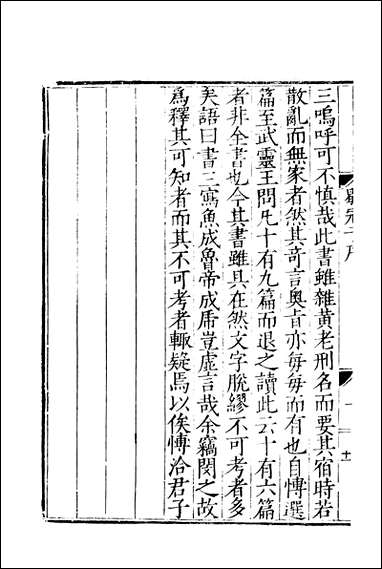 三嗚呼可不慎哉此書雖雜黃老刑名而要其宿時若
散亂而無家者然其奇言奧旨亦每每而有也自愽選
篇至武靈王問凡十有九篇而退之讀此云十有六篇
者非全書也今其書雖具在然文字脫繆不可考者多
矣語曰書三寫魚成魯帝成虎豈虛言哉余竊閔之故
為釋其可知者而其不可考者輙疑焉以俟愽洽君子